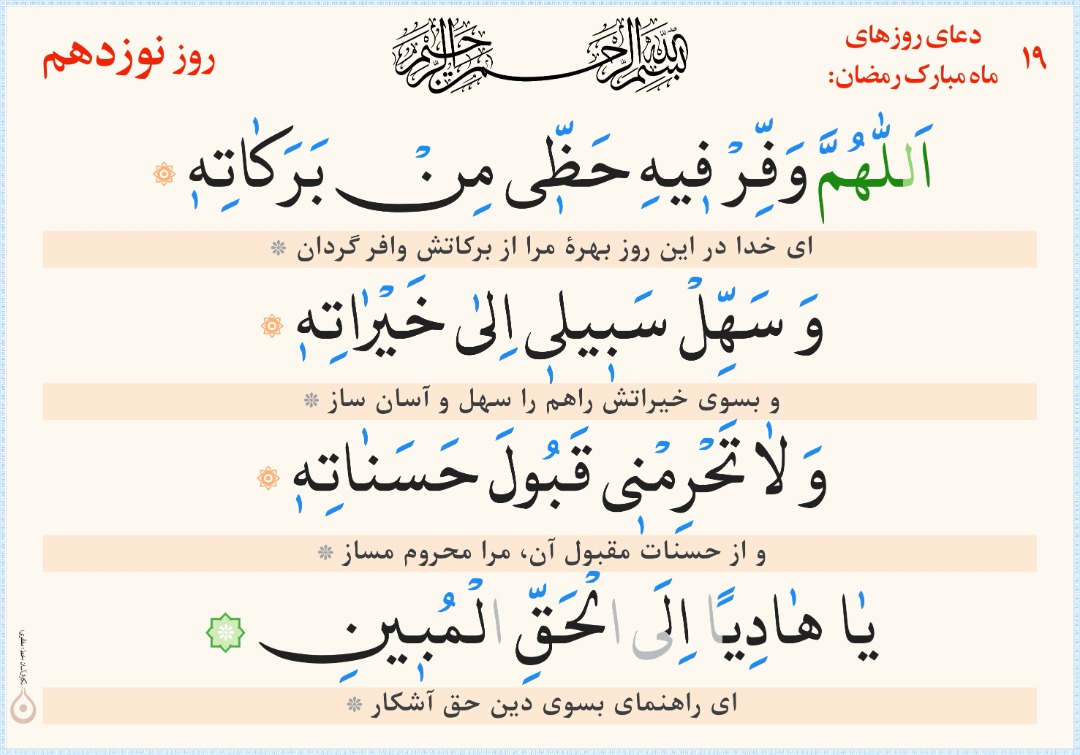 ۱۹ دعای روزهای
ماه مبارک رمضان:
بسم الله الرحمن الرحیم
روز نوزدهم
اَللّٰهُمَّ وَفِّرْ فیهِ حَظّی مِنْ بَرَکاتِهِ
ای خدا در این روز بهرهٔ مرا از برکاتش وافر گردان
وَ سَهِّلْ سَبیلی اِلیٰ خَیْراتِهِ
و بسوی خیراتش راهم را سهل و آسان ساز
وَ لا تَحْرِمْنی قَبُولَ حَسَناتِهِ
و از حسنات مقبول آن، مرا محروم مساز
یا هادِیًا اِلَی الْحَقِّ الْمُبینِ
ای راهنمای بسوی دین حق آشکار